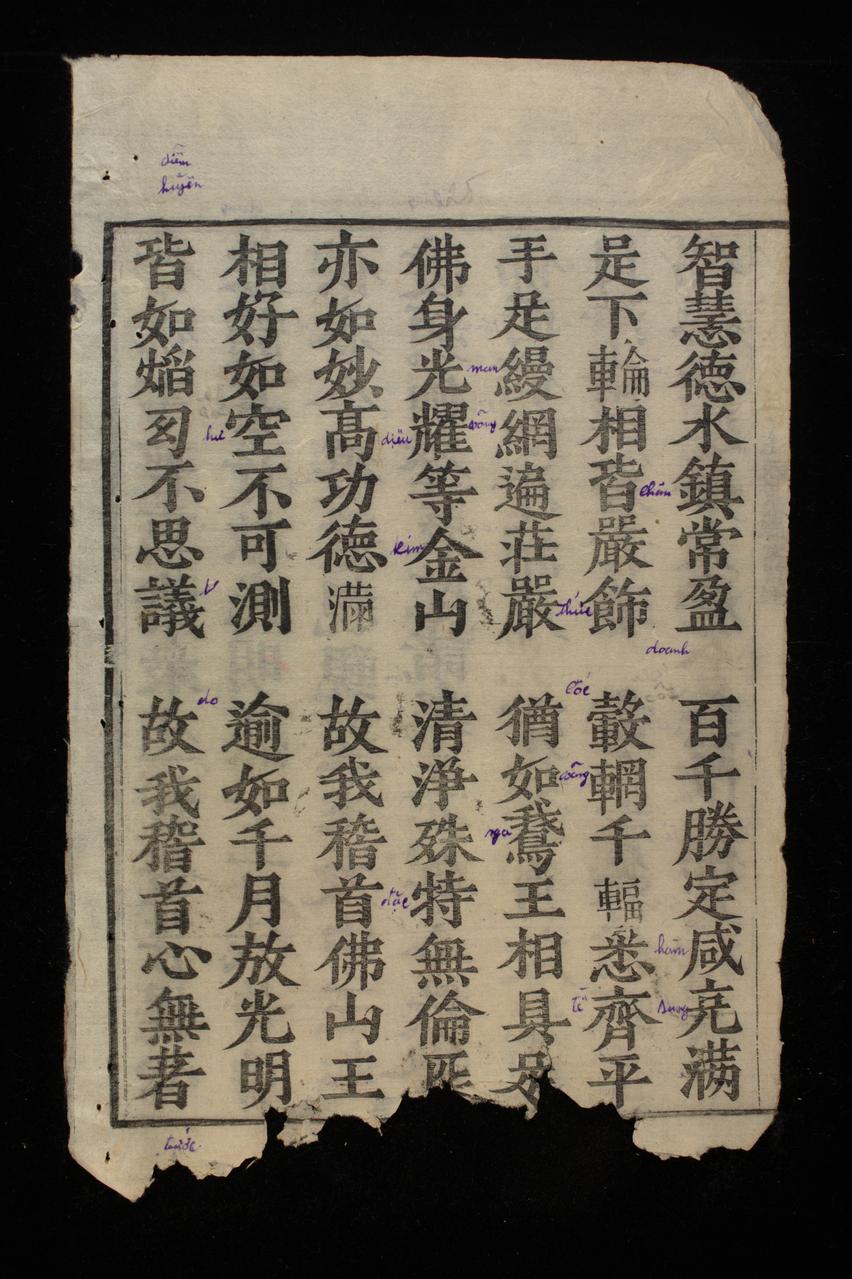 智慧德水鎮常盈　百千勝定咸充滿
足下輪相皆嚴飾　轂輞千輻悉齊平
手足縵網遍莊嚴　猶如鵞王相具足
佛身光耀等金山　清淨殊特無倫匹
亦如妙高功德滿　故我稽首佛山王
相好如空不可測　逾如千月放光明
皆如焰幻不思議　故我稽首心無著
diễm
huyễn
doanh
hàm
Sung
chân
thức
cốc
võng
tề
man
võng
nga
diệu
kim
đặc
do